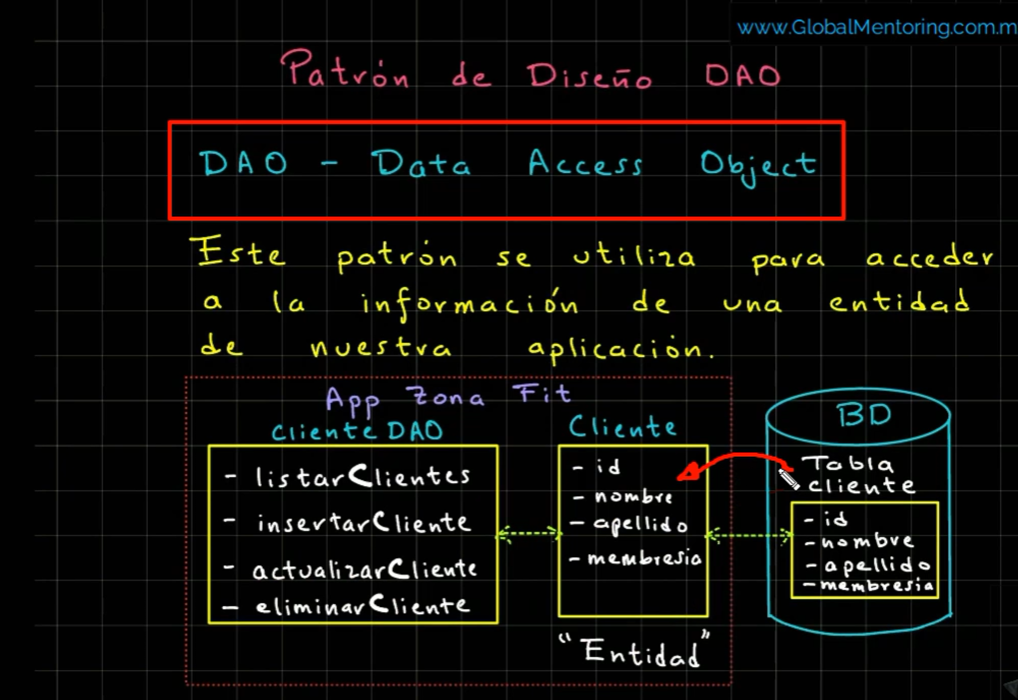 www.GlobalMentoring.com.m
Patrón de Diseño DAO
DAO - Data Access Object
Este patrón se utiliza para acceder
a la información de una entidad
de nuestra aplicación.
App Zona Fit
Cliente DAO
- listarClientes
- insertarCliente
- actualizarCliente
- eliminarCliente
Cliente
- id
- nombre
- apellido
- membresia
"Entidad"
BD
Tabla
cliente
- id
- nombre
- apellido
- membresia